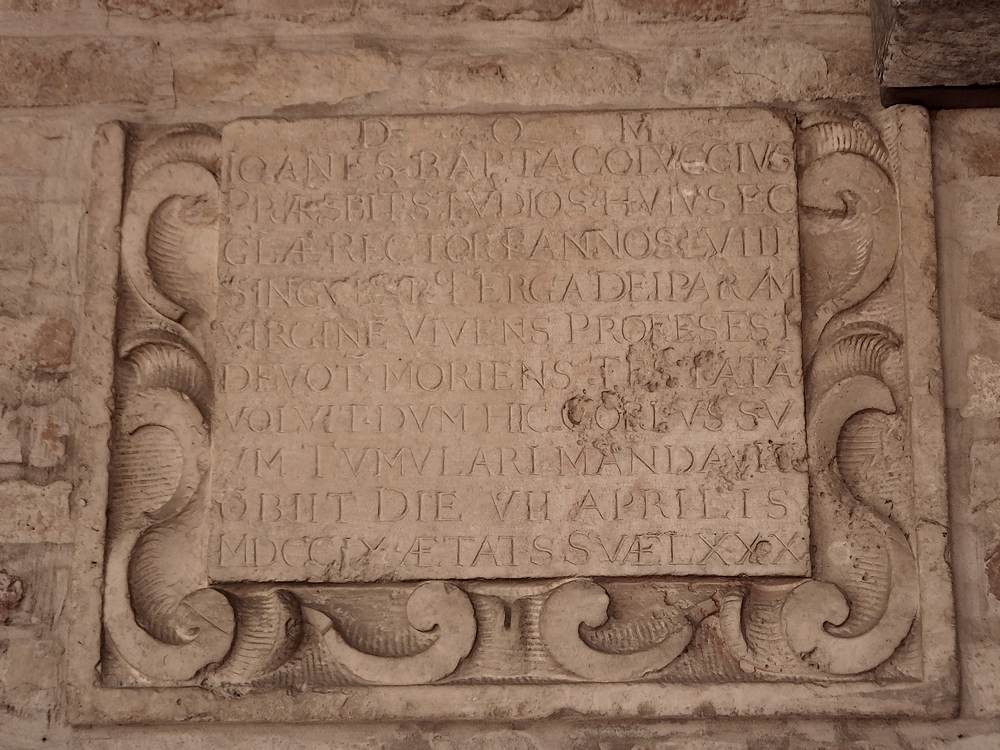 D O M
IOANES·BAPTA COLVCCIVS
PRÆSBIT·STVDIOS·HVIVS EC
CLÆ RECTOR PANNOS LVIII
SINGVLAT PERGA DEIPARAM
VIRGINĒ VIVENS PROFESES
DEVOT·MORIENS
VOLVIT·DVM HIC CORPVS SV
VM TVMVLARI MANDAVIT
OBIIT DIE VII APRILIS
MDCCLX·ÆTATIS SVÆ LXXX